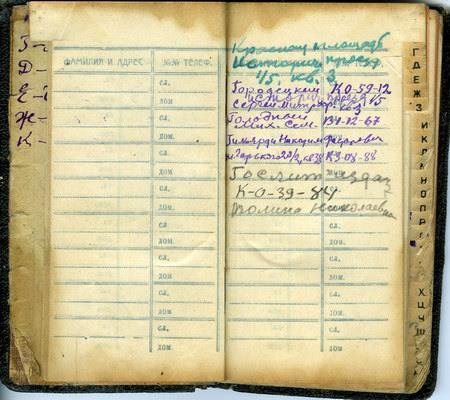 Г-
Д-
Е-
Ж-
К-
ФАМИЛИЯ И АДРЕС №№ ТЕЛЕФ.
сл.
дом
сл.
дом
сл.
дом.
сл.
дом.
сл.
дом
сл.
дом
сл.
дом.
сл.
дом.
Красная площадь
1/5. кв. 3.
Городецкий К 0-59-12
Сергей Митроф. 1/5
кв 3
Голодный
Мих. Сем. В 1-12-67
К3-08-88
Гослитиздат
К-0-39-84
Полина Николаевна
сл.
дом
сл.
дом
сл.
дом
сл.
дом.
Г Д Е Ж З И К Л М Н О П Р
Х Ц Ч Ш